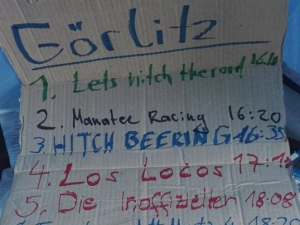 Görlitz
1. Lets hitch the road
2. Manatee Racing 16:20
3. HITCH BEERING 16:35
4. Los Locos
5. Die Inoffiziellen 18:08